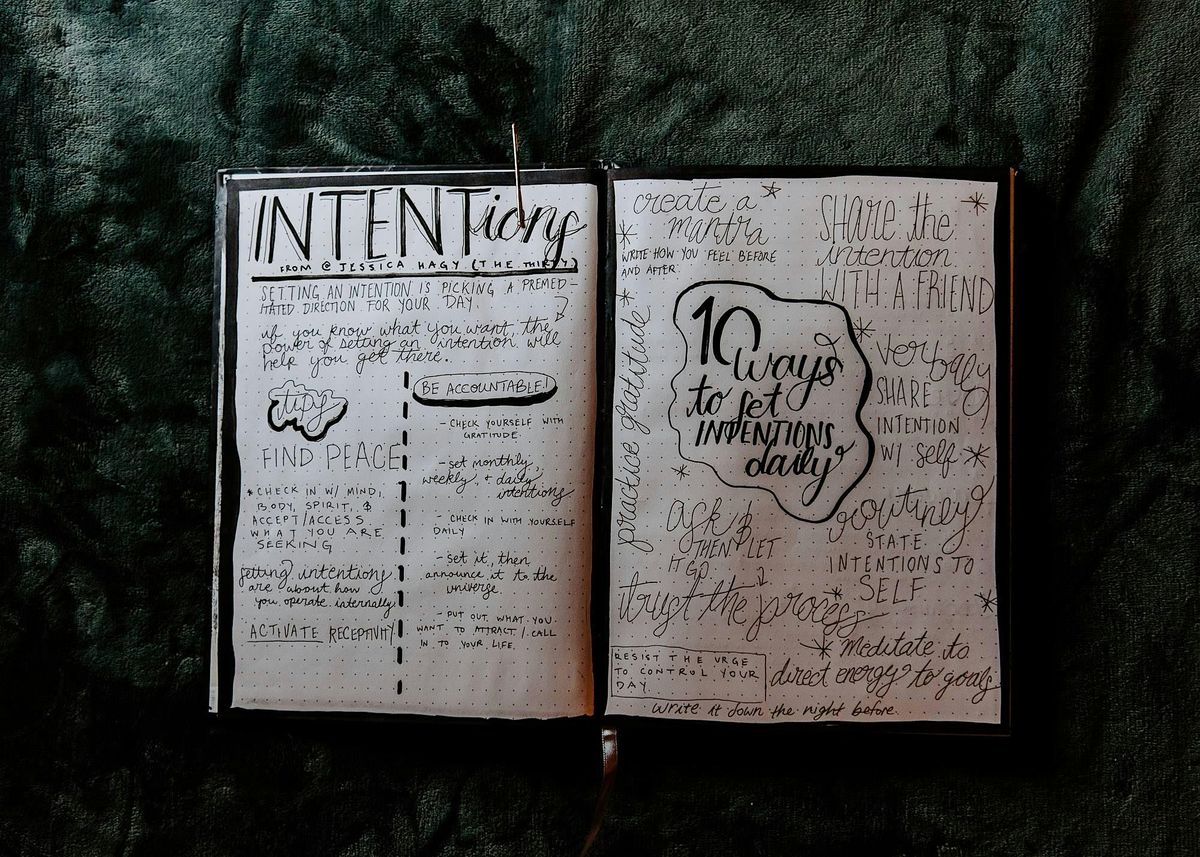 INTENTions
FROM @JESSICA HAGY (THE THIRTY)
SETTING AN INTENTION IS PICKING A PREMED-
ITATED DIRECTION FOR YOUR DAY
if you know what you want, the
power of setting an intention will
help you get there.
tips
FIND PEACE
* CHECK IN W/ MIND,
BODY, SPIRIT, &
ACCEPT/ACCESS
WHAT YOU ARE
SEEKING
setting intentions
are about how
you operate internally
ACTIVATE RECEPTIVITY
BE ACCOUNTABLE!
- CHECK YOURSELF WITH
GRATITUDE.
- set monthly,
weekly, + daily
intentions
- CHECK IN WITH YOURSELF
DAILY
- set it, then
announce it to the
universe.
- PUT OUT WHAT YOU
WANT TO ATTRACT / CALL
IN TO YOUR LIFE.
create a
mantra
WRITE HOW YOU FEEL BEFORE
AND AFTER.
SHARE the
intention
WITH A FRIEND
practice gratitude
10
ways
to set
INTENTIONS
daily
verbally
SHARE
INTENTION
W/ self
ask &
THEN LET
IT GO.
routinely
STATE
INTENTIONS TO
SELF
trust the process
RESIST THE URGE
TO CONTROL YOUR
DAY.
* Meditate to
direct energy to goals
write it down the night before.